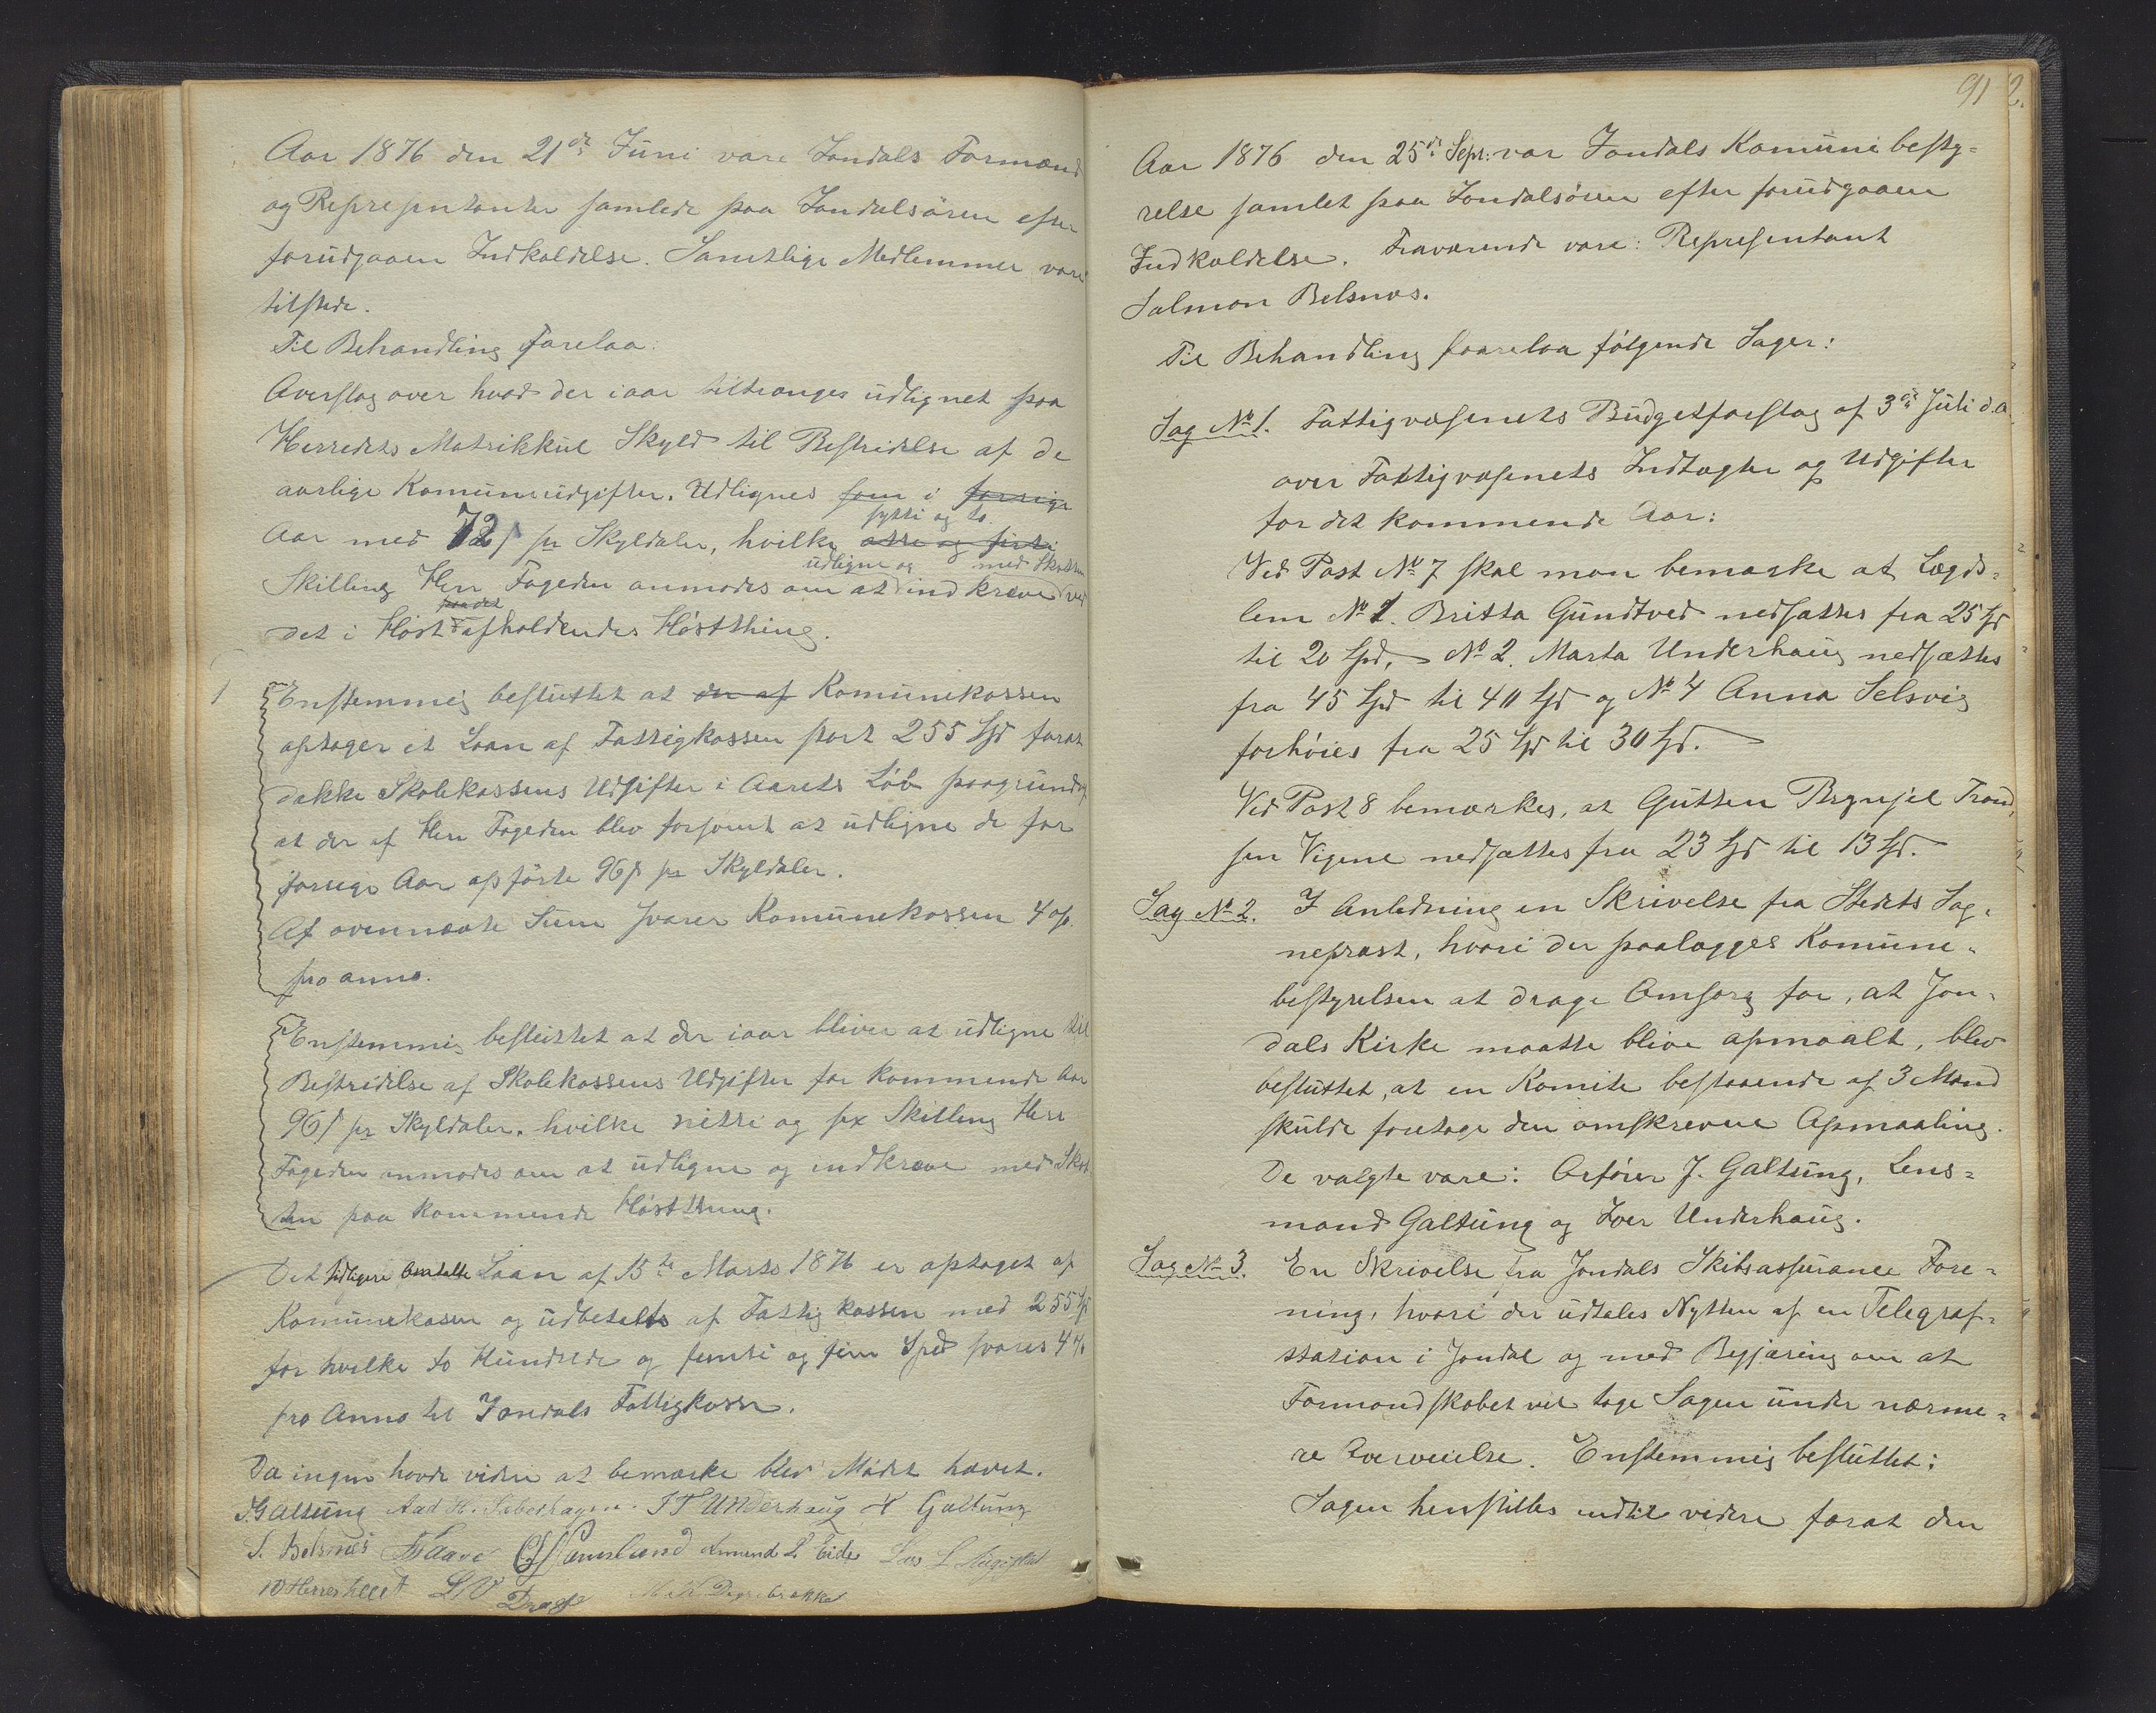 Aar 1876 den 21de Juni vare Jondals Formænd
og Representanter samlede paa Jondalsøren efter
forudgaaen Indkaldelse. Samtlige Medlemmer vare
tilstede.
Til Behandling forelaa:
Overslag over hvad der iaar tiltrænges udlignet paa
Herredets Matrikkul Skyld til Bestridelse af de
aarlige Komuneudgifter. Udlignes som i forrige
sytti og to
Aar med 72 ß pr Skyldaler, hvilke otte og firti
udligne og med Skatten
Skilling Herr Fogeden anmodes om at indkræve ved
paa det
det i Høst afholdendes Høstthing.
1 Enstemmig besluttet at der af Komunekassen
optager et Laan af Fattigkassen stort 255 Spd forat
dække Skolekassens Udgifter i Aarets Løb paagrund af
at der af Herr Fogeden blev forsømt at udligne de for
forrige Aar opførte 96 ß pr Skyldaler.
Af ovennævte Sum svarer Komunekassen 4 %
pro anno.
Enstemmig besluttet at der iaar bliver at udligne til
Bestridelse af Skolekassens Udgifter for kommende Aar
96 ß pr Skyldaler, hvilke nitti og sex Skilling Herr
Fogeden anmodes om at udligne og indkræve med Skat
ten paa kommende Høstthing.
Det tidligere omtalte Laan af 15de Marts 1876 er optaget af
Komunekassen og udbetalts af Fattigkassen med 255 Spd
for hvilke to Hundrede og femti og fem Spd svares 4 %
pro Anno til Jondals Fattigkasse.
Da ingen havde videre at bemærke blev Mødet hævet.
J. Galtung Aad H. Sæberhagen. I T Underhaug H Galtung
S. Belsnes Amund L. Eide Lars L
Herrestvedt
91 2.
Aar 1876 den 25de Sept: var Jondals Komunebesty=
relse samlet paa Jondalsøren efter forudgaaen
Indkaldelse. Fraværende vare: Representant
Salmon Belsnæs.
Til Behandling foorelaa følgende Sager:
Sag No 1. Fattigvæsenets Budgetforslag af 3de Juli d.A.
over Fattigvæsenets Indtægter og Udgifter
for det kommende Aar:
Ved Post No 7 skal man bemærke at Lægds=
lem No 1. Britta Gundtved nedsættes fra 25 Spd
til 20 Spd, No 2. Marta Underhaug nedsættes
fra 45 Spd til 40 Spd og No 4 Anna Selsvig
forhøies fra 25 Spd til 30 Spd.
Ved Post 8 bemærkes, at Gutten Brynjel Trond,
sen Vigene nedsættes fra 23 Spd til 13 Spd.
Sag No 2. I Anledning en Skrivelse fra Stedets Sog=
nepræst, hvori der paalægges Komune=
bestyrelsen at drage Omsorg for, at Jon=
dals Kirke maatte blive opmaalt, blev
besluttet, at en Komite bestaaende af 3 Mænd
skulde foretage den omskrevne Opmaaling.
De valgte vare: Orfører J. Galtung, Lens=
mand Galtung og Iver Underhaug.
Sag No 3. En Skrivelse fra Jondals Skibsassurance Fore=
ning, hvori der udtales Nytten af en Telegraf=
station i Jondal og med Begjæring om at
Formandskabet vil tage Sagen under nærme=
re Overveielse. Enstemmig besluttet:
Sagen henstilles indtil videre forat den